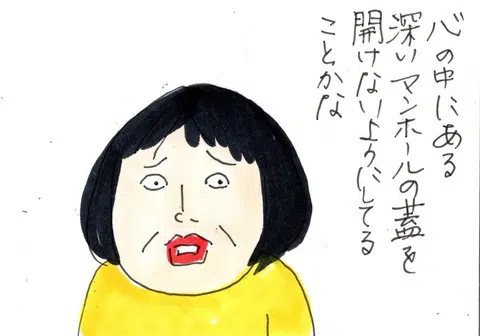 心の中にある
深いマンホールの蓋を
開けないようにしてる
ことかな